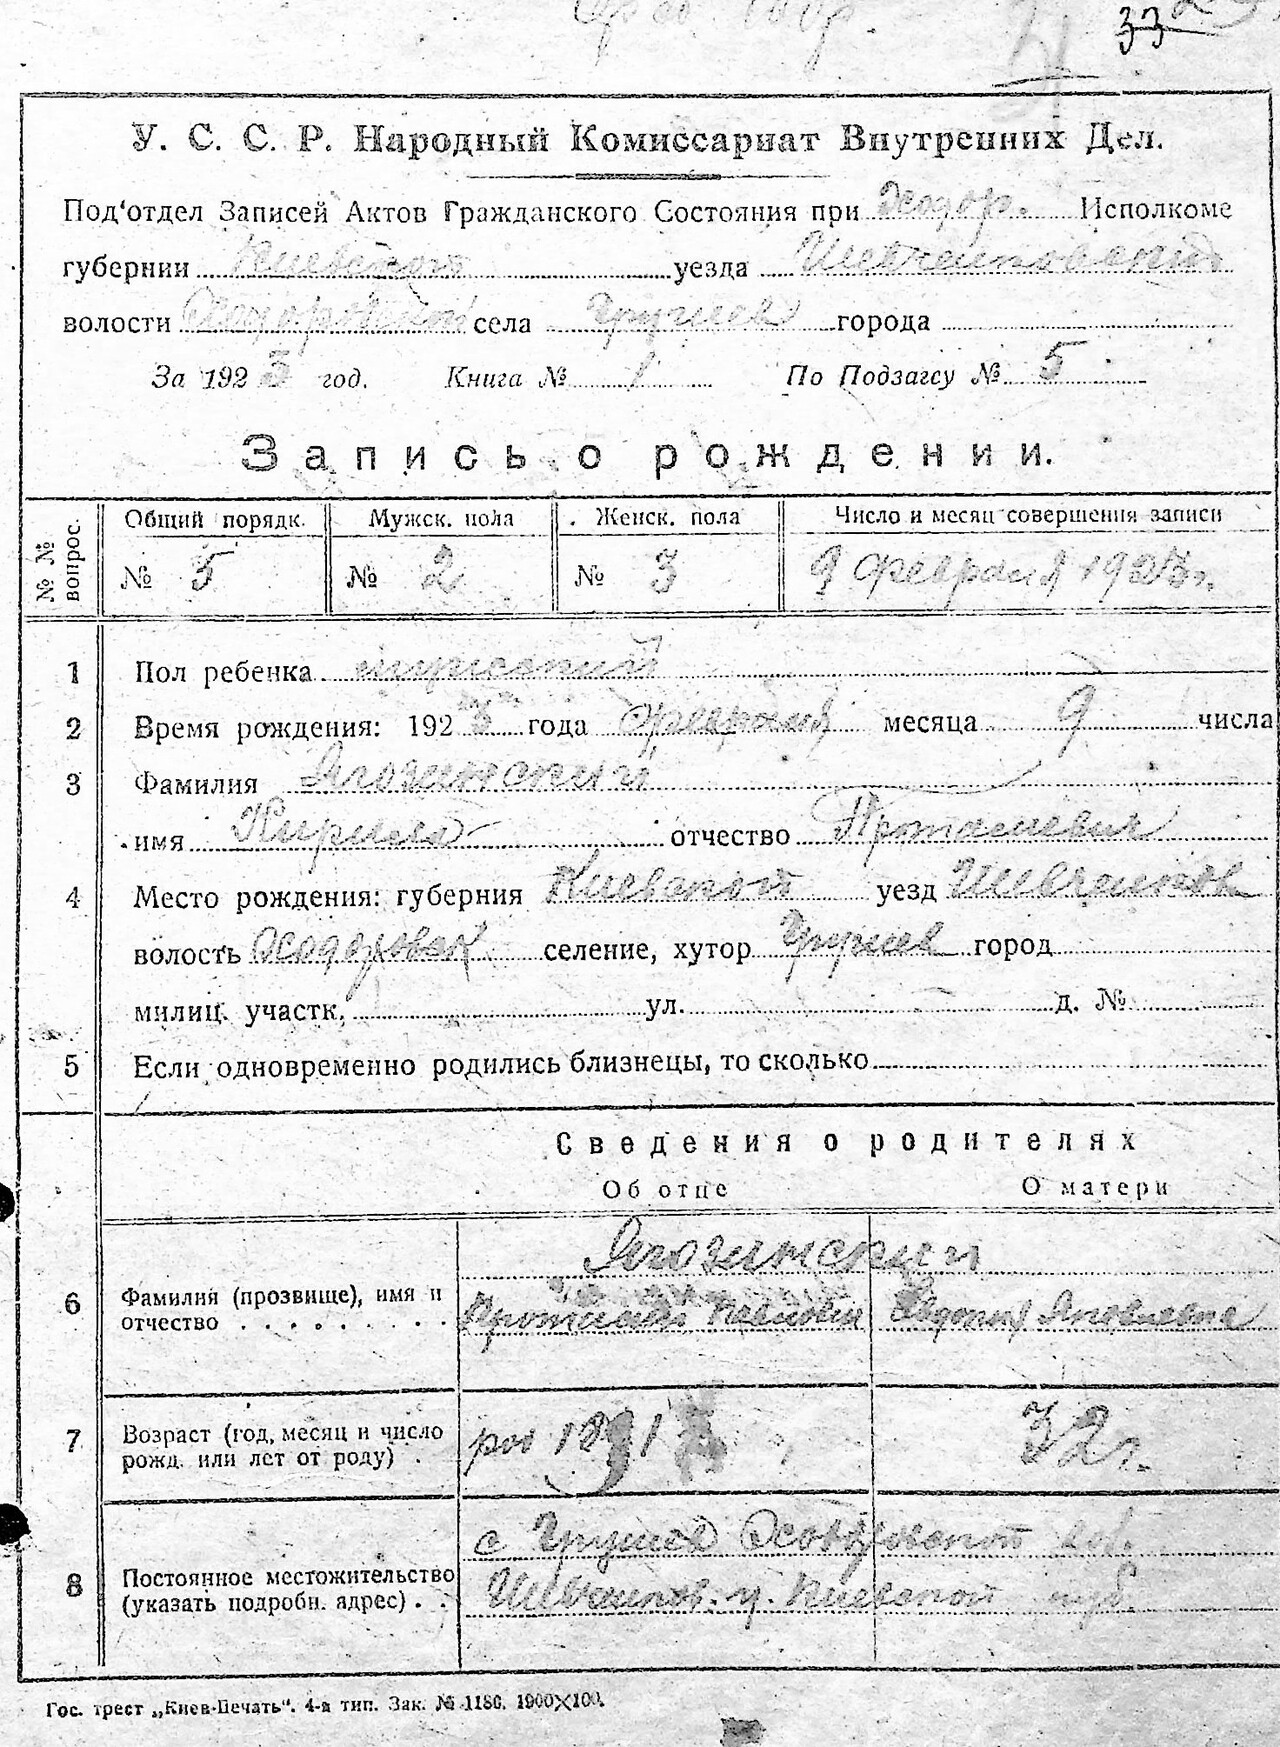 33
У. С. С. Р. Народный Комиссариат Внутренних Дел.
Под'отдел Записей Актов Гражданского Состояния при Ходор. Исполкоме
губернии Киевской уезда Шевченковский
волости Ходоровской села Грушев города
За 1923 год. Книга № 1 По Подзагсу № 5
Запись о рождении.
№ № вопрос. Общий порядк. Мужск. пола Женск. пола Число и месяц совершения записи
№ 5 № 2 № 3 9 февраля 1923 г.
1 Пол ребенка мужской
2 Время рождения: 1923 года февраля месяца 9 числа
3 Фамилия Ягозинский
имя Кирилл отчество Протасиевич
4 Место рождения: губерния Киевской уезд Шевченков
волость Ходоровск селение, хутор Грушев город
милиц. участк. ул. д. №
5 Если одновременно родились близнецы, то сколько
Сведения о родителях
Об отце О матери
Ягозинский
6 Фамилия (прозвище), имя и
отчество Протасий Павлович Евдокия Яковлевна
7 Возраст (год, месяц и число
рожд. или лет от роду) 1891 32 г.
с Грушев Ходоровской вол.
8 Постоянное местожительство
(указать подробн. адрес) Шевченков. у. Киевской губ.
Гос. трест „Киев-Печать“. 4-я тип. Зак. № 1186. 1900×100.